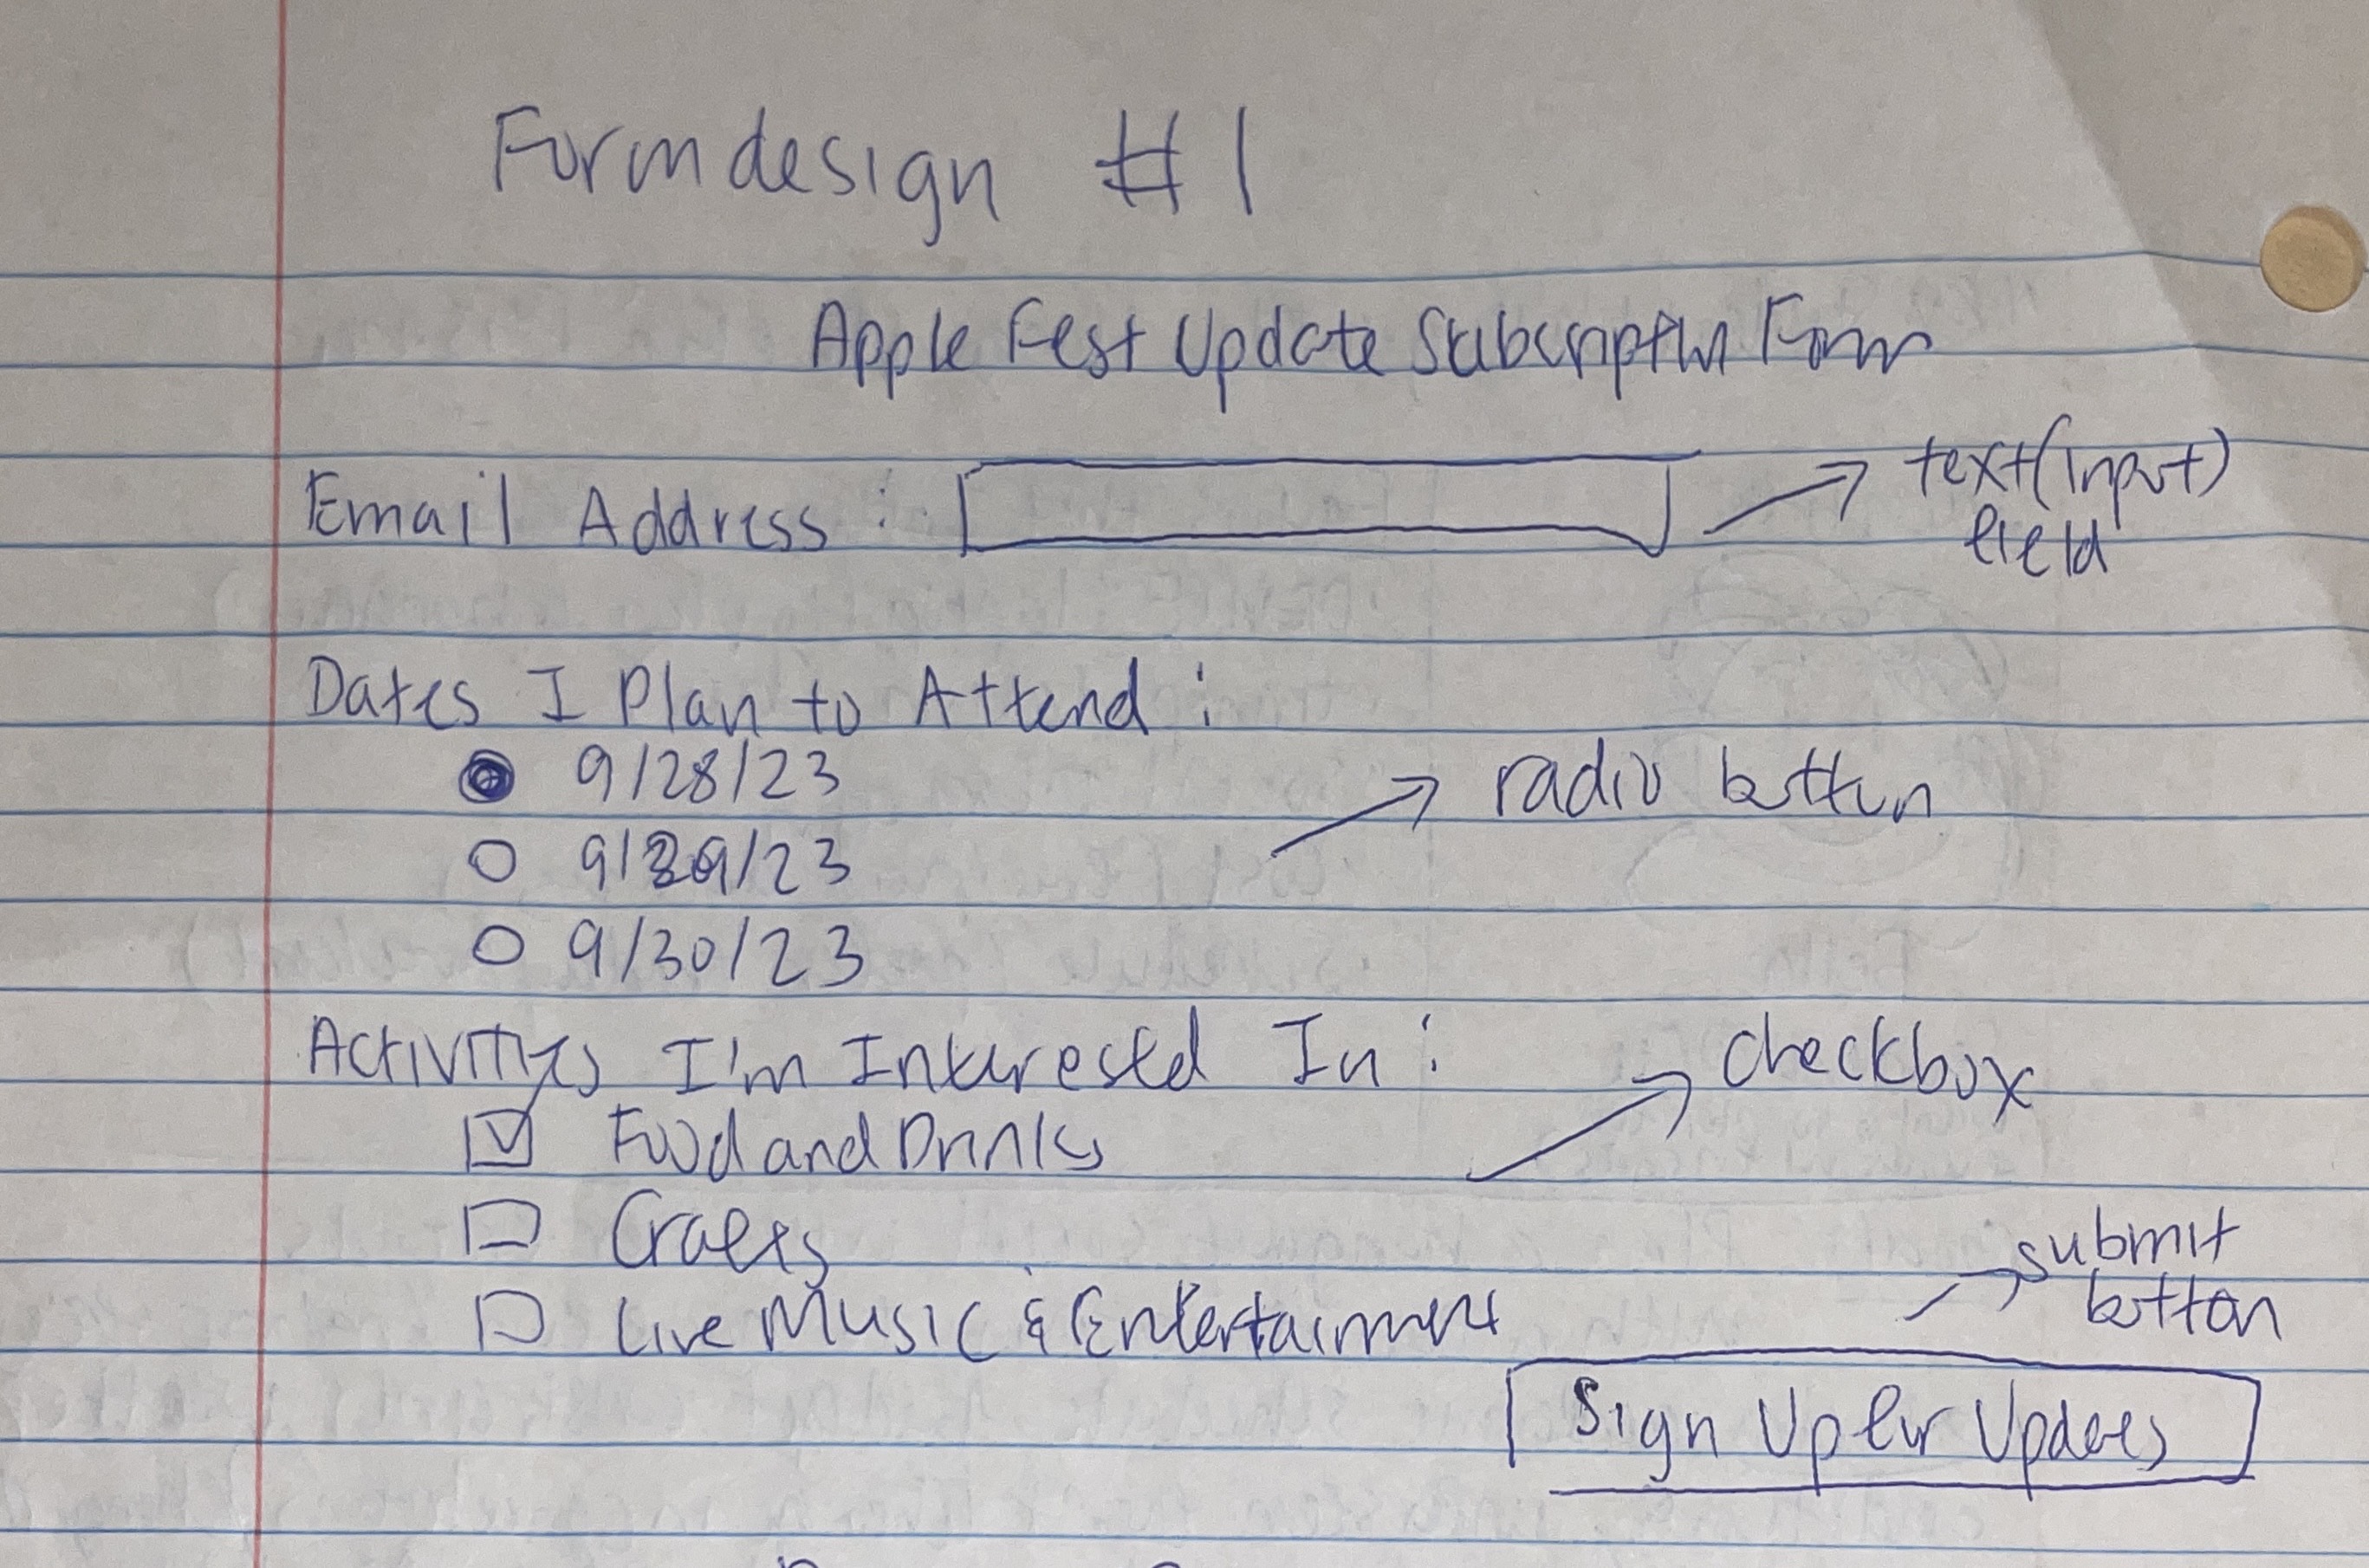 Form design #1
Apple Fest Update Subscription Form
Email Address :
text(input)
field
Dates I Plan to Attend :
9/28/23
9/29/23
9/30/23
radio button
Activities I'm Interested In :
checkbox
Food and Drinks
Crafts
Live Music & Entertainment
submit
button
Sign Up for Updates